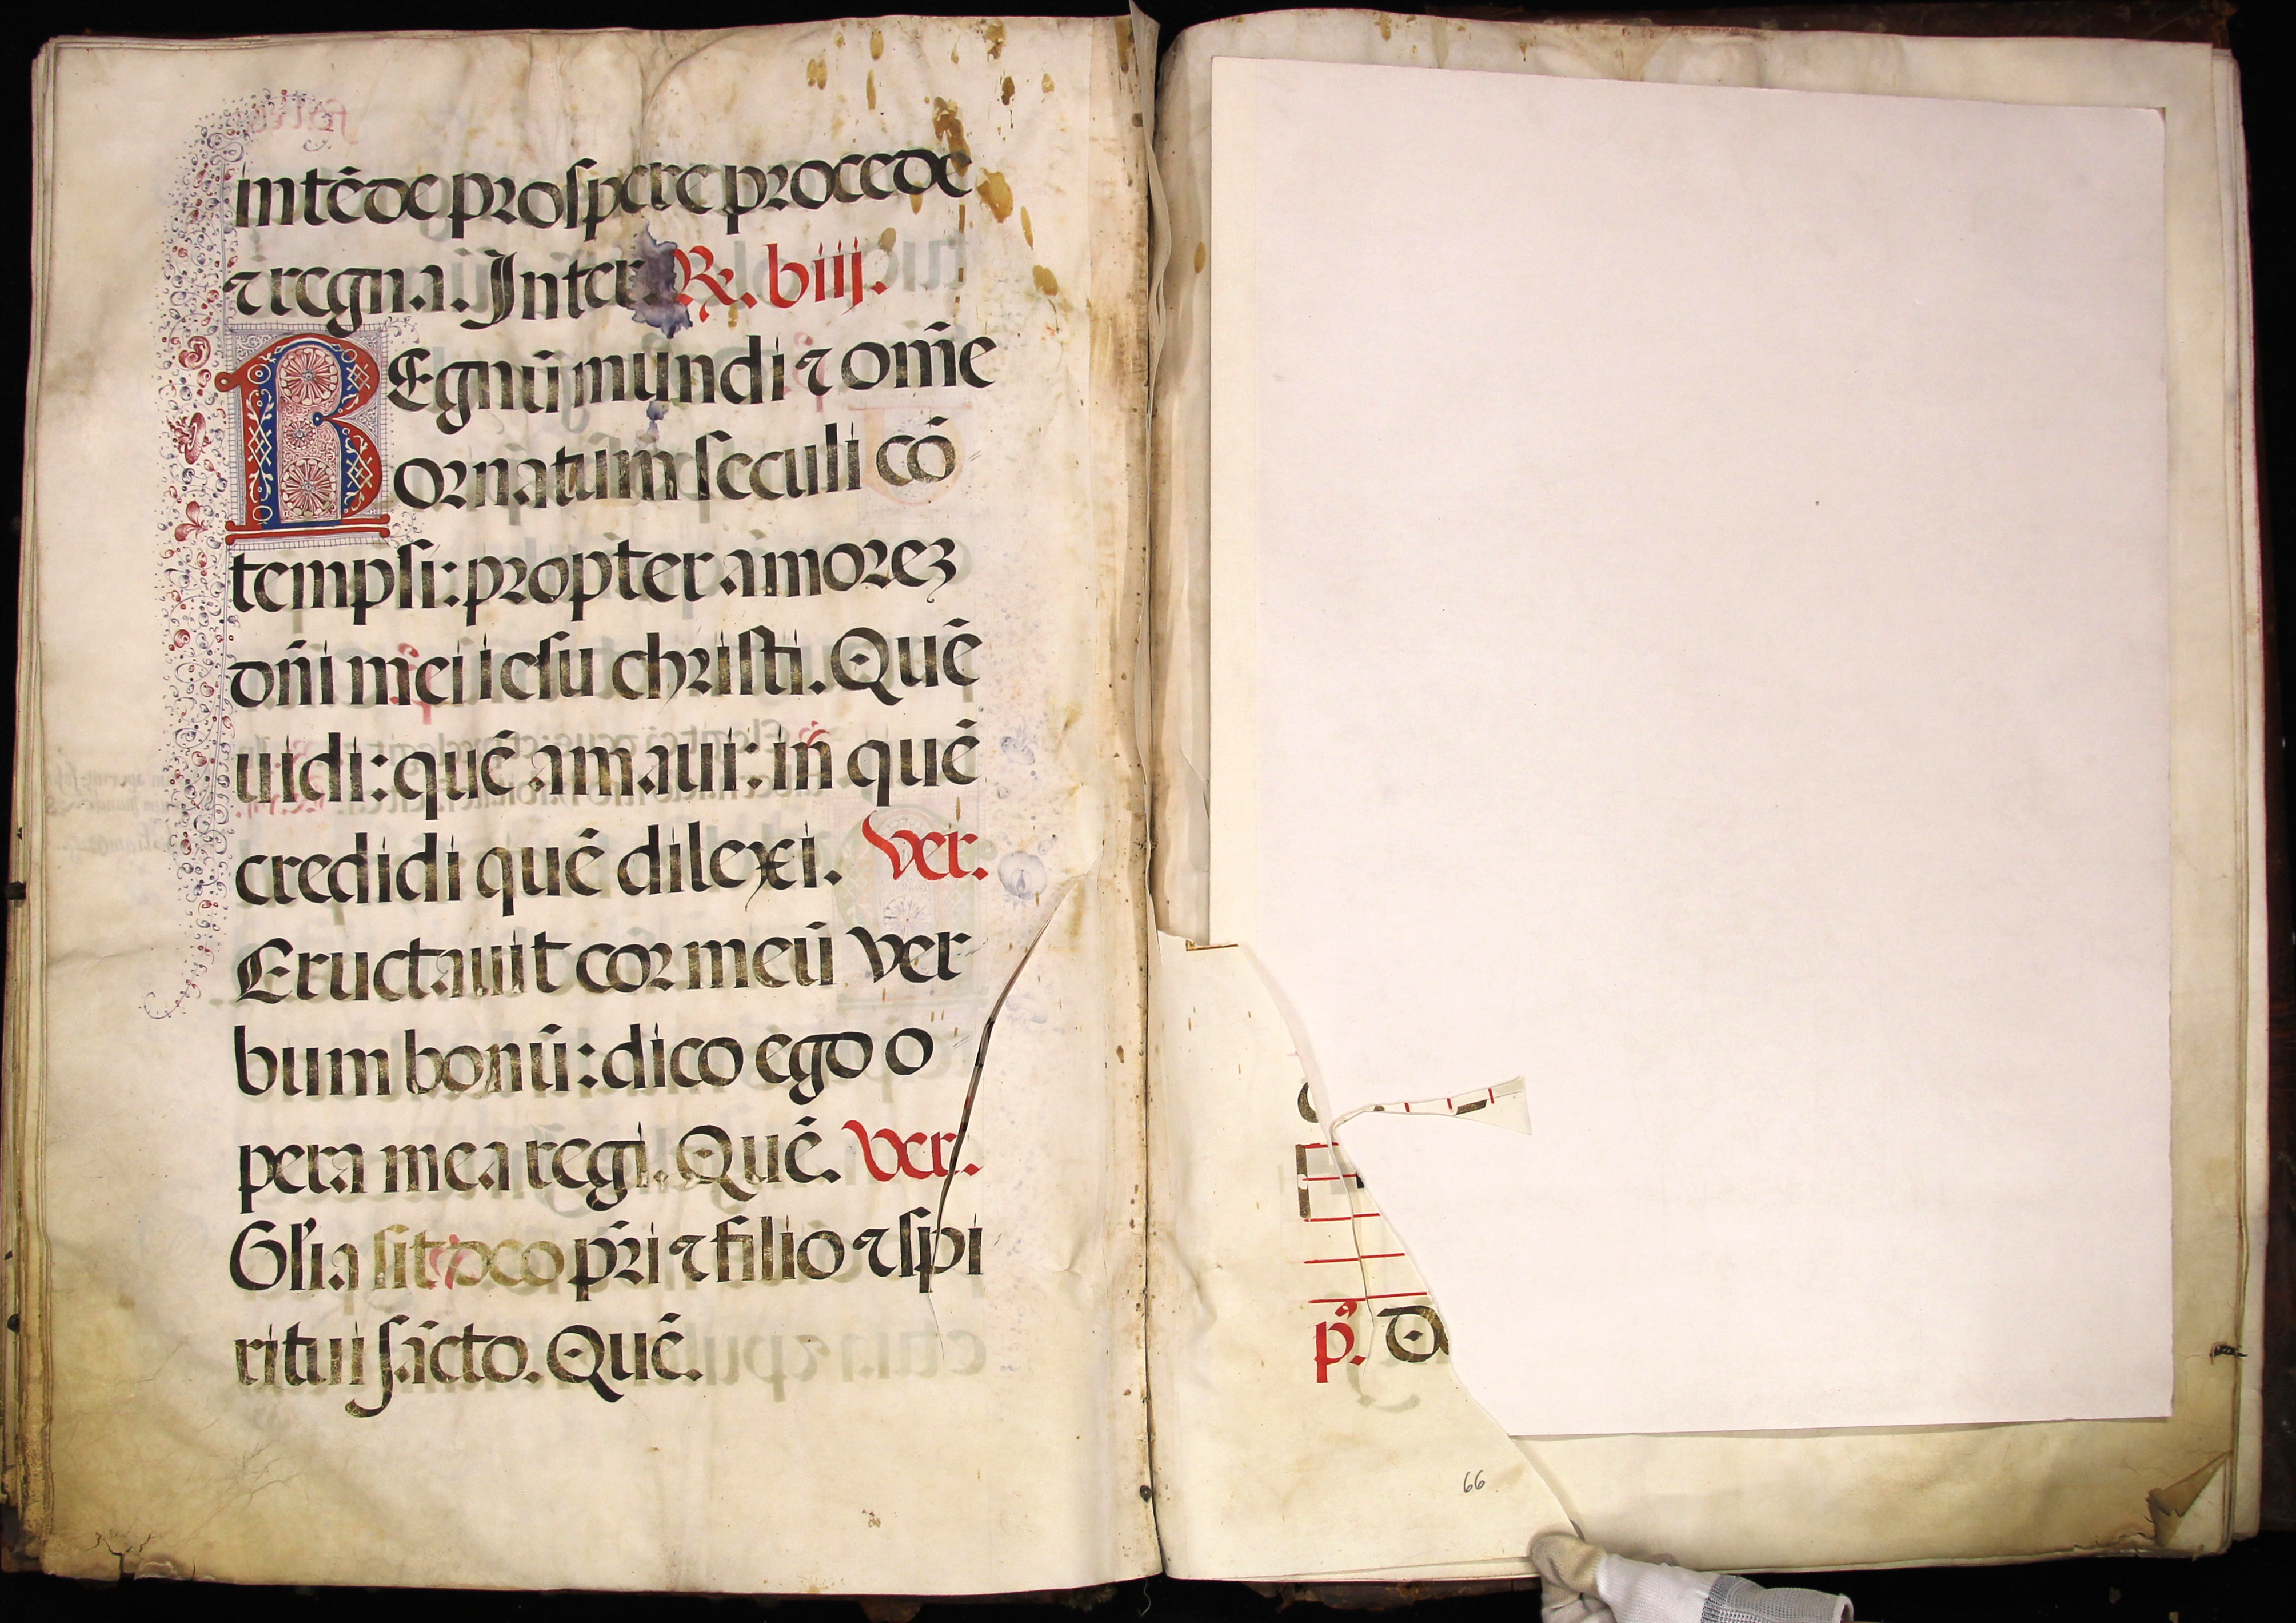 intēde prospere procede
⁊ regna. Inter. ℞. viij.
REgnū mundi ⁊ om̄e
ornatum seculi cō
tempsi: propter amorez
dn̄i mei iesu christi. Quē
uidi: quē amaui: in quē
credidi quē dilexi. Ver.
Eructauit cor meū ver
bum bonū: dico ego o
pera mea regi. Quē. Ver.
Gl'ia sit deo pr̄i ⁊ filio ⁊ spi
ritui sācto. Quē.
p̊. D
66